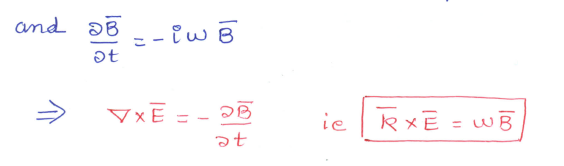 and ∂B̅/∂t = - i ω B̅
⇒ ∇ × E̅ = - ∂B̅/∂t ie k̅ × E̅ = ωB̅